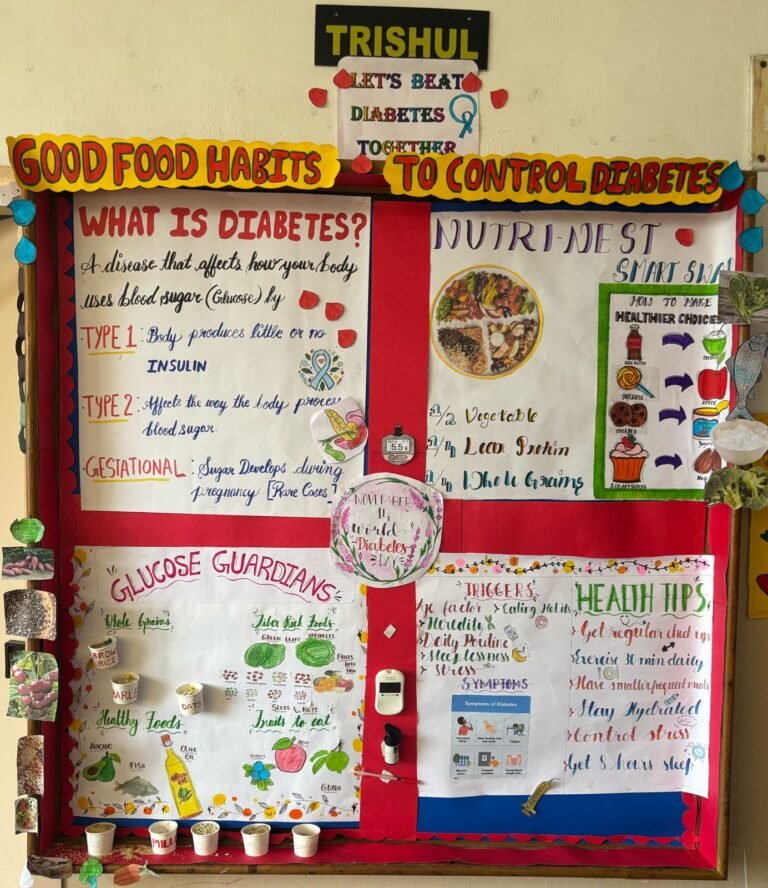 TRISHUL
LET'S BEAT
DIABETES
TOGETHER
GOOD FOOD HABITS TO CONTROL DIABETES
WHAT IS DIABETES?
A disease that affects how your body
uses blood sugar (Glucose) by
TYPE 1 : Body produces little or no
INSULIN
TYPE 2 : Affects the way the body process
blood sugar.
GESTATIONAL : Sugar Develops during
pregnancy [Rare Cases]
NUTRI-NEST
SMART SWA
1/2 Vegetable
1/4 Lean Protein
1/4 Whole Grains
HOW TO MAKE
HEALTHIER CHOICES
APPLE
COOKIES
5.5
NOVEMBER
14
World
Diabetes
DAY
GLUCOSE GUARDIANS
Whole Grains
BROWN
RICE
OATS
Fiber Rich Foods
GREEN LEAFY VEGETABLES
FRUITS
WITH
SKIN
SEEDS & NUTS
Healthy Foods
AVACADO
FISH
OLIVE
OIL
Fruits to eat
BERRIES
APPLE
GUAVA
MILL
TRIGGERS
Age factor
Eating Habits
Heredity
Daily Routine
Sleeplessness
Stress
SYMPTOMS
Symptoms of Diabetes
HEALTH TIPS
Get regular check up
Exercise 30 min daily
Have smaller frequent meals
Stay Hydrated
Control stress
Get 8 hours sleep